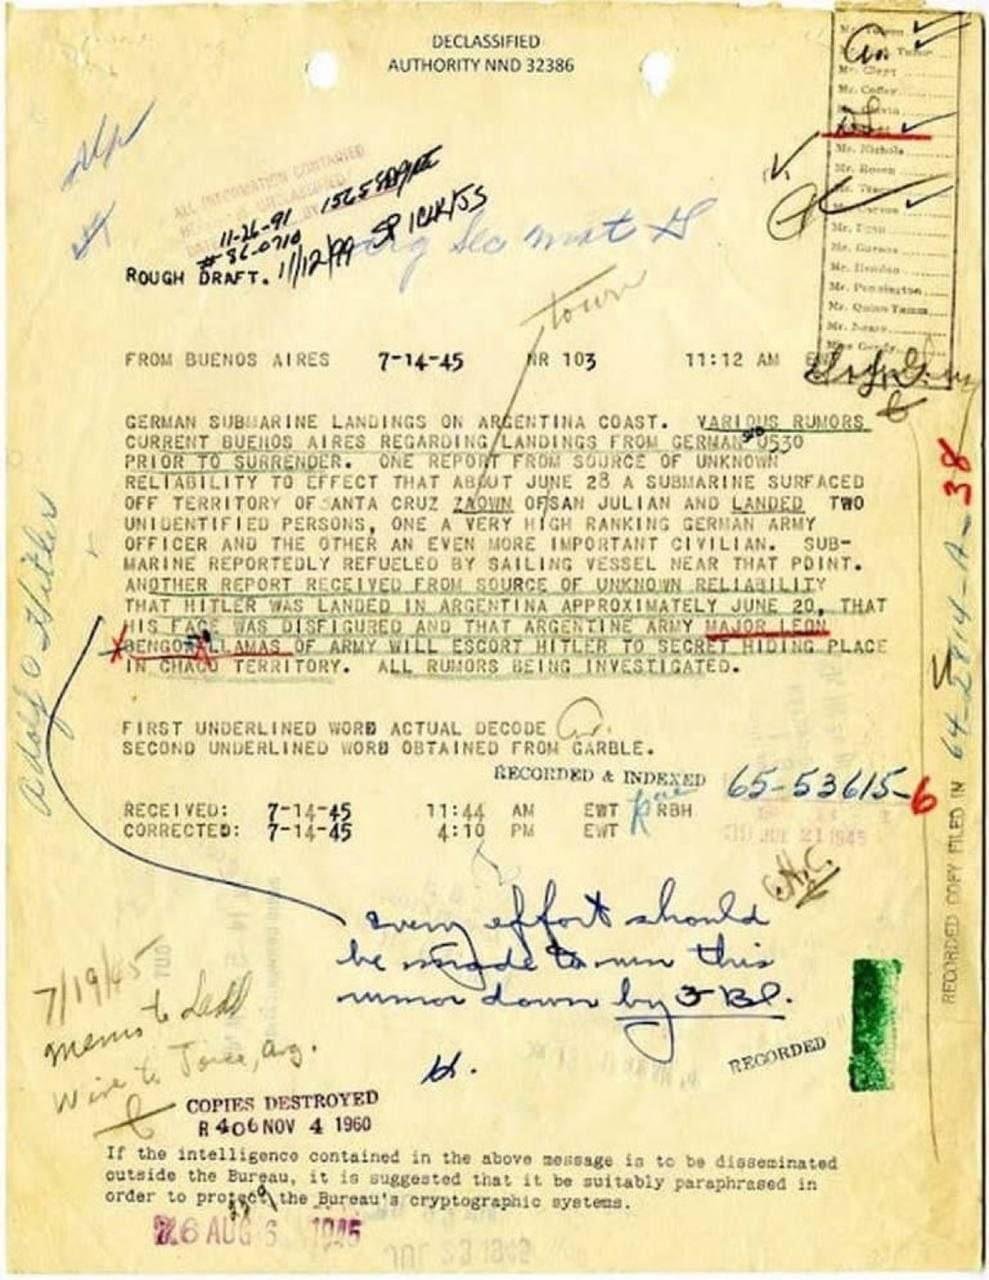 DECLASSIFIED
AUTHORITY NND 32386
Mr. Clegg
Mr. Coffey
Mr. Nichols
Mr. Rosen
Mr. Carson
Mr. Egan
Mr. Gurnea
Mr. Hendon
Mr. Pennington
Mr. Quinn Tamm
Mr. Nease
Miss Gandy
ALL INFORMATION CONTAINED
11-26-91
#86-0710
11/12/99
ROUGH DRAFT.
town
FROM BUENOS AIRES 7-14-45 NR 103 11:12 AM
GERMAN SUBMARINE LANDINGS ON ARGENTINA COAST. VARIOUS RUMORS
CURRENT BUENOS AIRES REGARDING LANDINGS FROM GERMAN SUB U530
PRIOR TO SURRENDER. ONE REPORT FROM SOURCE OF UNKNOWN
RELIABILITY TO EFFECT THAT ABOUT JUNE 28 A SUBMARINE SURFACED
OFF TERRITORY OF SANTA CRUZ ZAOWN OF SAN JULIAN AND LANDED TWO
UNIDENTIFIED PERSONS, ONE A VERY HIGH RANKING GERMAN ARMY
OFFICER AND THE OTHER AN EVEN MORE IMPORTANT CIVILIAN. SUB-
MARINE REPORTEDLY REFUELED BY SAILING VESSEL NEAR THAT POINT.
ANOTHER REPORT RECEIVED FROM SOURCE OF UNKNOWN RELIABILITY
THAT HITLER WAS LANDED IN ARGENTINA APPROXIMATELY JUNE 20, THAT
HIS FACE WAS DISFIGURED AND THAT ARGENTINE ARMY MAJOR LEON
BENGOA LLAMAS OF ARMY WILL ESCORT HITLER TO SECRET HIDING PLACE
IN CHACO TERRITORY. ALL RUMORS BEING INVESTIGATED.
Adolf Hitler
FIRST UNDERLINED WORD ACTUAL DECODE
SECOND UNDERLINED WORD OBTAINED FROM GARBLE.
RECORDED & INDEXED 65-53615-6
RECEIVED: 7-14-45 11:44 AM EWT RBH
CORRECTED: 7-14-45 4:10 PM EWT
JUL 21 1945
RECORDED COPY FILED IN 64-2814-A-38
every effort should
be made to run this
rumor down by FBI.
H.
7/19/45
memo to Ladd
Wire to Arg.
RECORDED
COPIES DESTROYED
R 406 NOV 4 1960
If the intelligence contained in the above message is to be disseminated
outside the Bureau, it is suggested that it be suitably paraphrased in
order to protect the Bureau's cryptographic systems.
26 AUG 6 1945